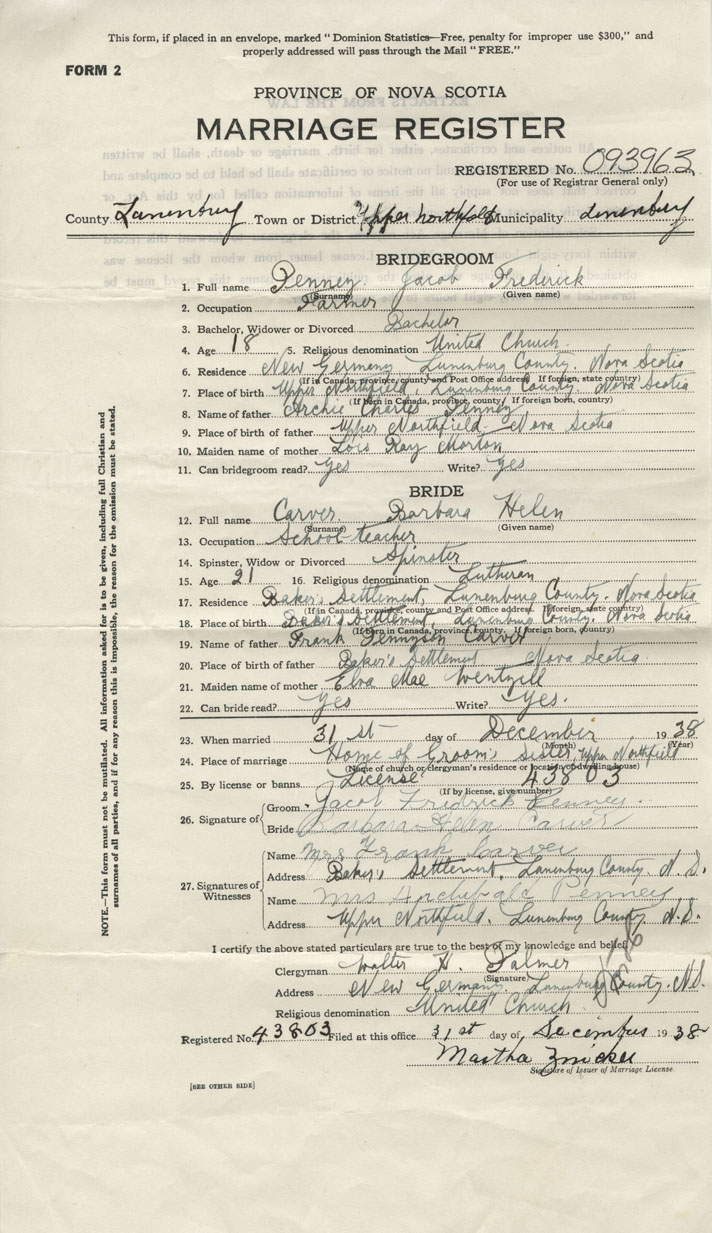 This form, if placed in an envelope, marked "Dominion Statistics—Free, penalty for improper use $300," and
properly addressed will pass through the Mail "FREE."
FORM 2
PROVINCE OF NOVA SCOTIA
MARRIAGE REGISTER
REGISTERED No. 093963
(For use of Registrar General only)
County Lunenburg Town or District Upper Northfield Municipality Lunenburg
BRIDEGROOM
1. Full name Penney Jacob Frederick
(Surname) (Given name)
2. Occupation Farmer
3. Bachelor, Widower or Divorced Bachelor
4. Age 18 5. Religious denomination United Church
6. Residence New Germany, Lunenburg County, Nova Scotia
(If in Canada, province, county and Post Office address. If foreign, state country)
7. Place of birth Upper Northfield, Lunenburg County, Nova Scotia
(If born in Canada, province, county, If foreign born, country)
8. Name of father Archie Charles Penney
9. Place of birth of father Upper Northfield Nova Scotia
10. Maiden name of mother Lois Ray Morton
11. Can bridegroom read? Yes Write? Yes
BRIDE
12. Full name Carver Barbara Helen
(Surname) (Given name)
13. Occupation School teacher
14. Spinster, Widow or Divorced Spinster
15. Age 21 16. Religious denomination Lutheran
17. Residence Baker's Settlement, Lunenburg County, Nova Scotia
(If in Canada, province, county and Post Office address. If foreign, state country)
18. Place of birth Baker's Settlement, Lunenburg County, Nova Scotia
(If born in Canada, province, county, If foreign born, country)
19. Name of father Frank Tennyson Carver
20. Place of birth of father Baker's Settlement Nova Scotia
21. Maiden name of mother Elva Mae Wentzell
22. Can bride read? Yes Write? Yes.
23. When married 31st day of December 1938
(Month) (Year)
24. Place of marriage Home of Groom's Sister, Upper Northfield
(Name of church or clergyman's residence or location of dwelling house)
25. By license or banns License 43803
(If by license, give number)
26. Signature of Groom Jacob Frederick Penney
Bride Barbara Helen Carver
27. Signatures of Witnesses
Name Mrs Frank Carver
Address Baker's Settlement, Lunenburg County, N.S.
Name Mrs Archibald Penney
Address Upper Northfield, Lunenburg County N.S.
I certify the above stated particulars are true to the best of my knowledge and belief.
Clergyman Walter H. Palmer
(Signature)
Address New Germany, Lunenburg County, N.S.
Religious denomination United Church
Registered No. 43803 Filed at this office 31st day of December 1938
Martha Zwicker
Signature of Issuer of Marriage License
[SEE OTHER SIDE]
NOTE.—This form must not be mutilated. All information asked for is to be given, including full Christian and
surnames of all parties, and if for any reason this is impossible, the reason for the omission must be stated.